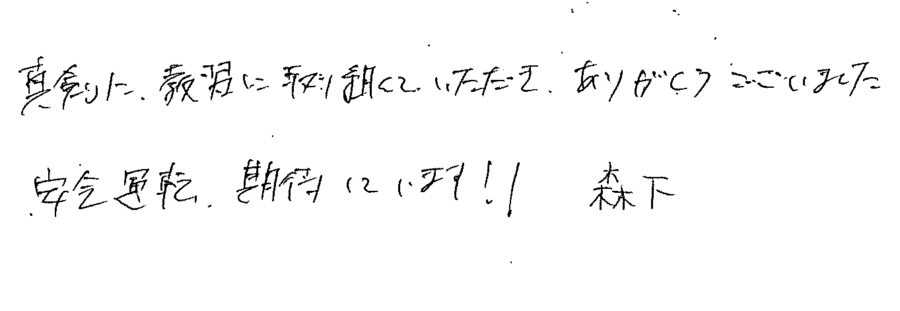 真剣に、教習に取り組んでいただき、ありがとうございました
安全運転、期待しています!!　森下